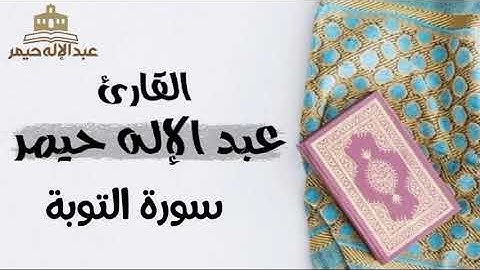 عبد الإله حيمر
القارئ
عبد الإله حيمر
سورة التوبة